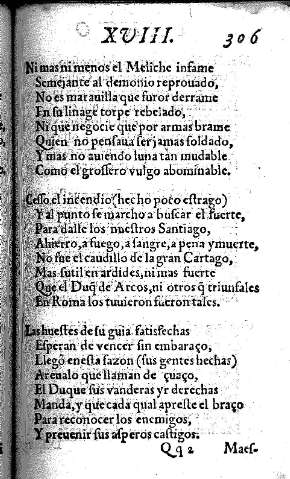 XVIII. 306
Ni mas ni menos el Meliche infame
Semejante al demonio reprouado,
No es marauilla que furor derrame
En su linage torpe rebelado,
Ni que negocie que por armas brame
Quien no pensaua ser jamas soldado,
Y mas no auiendo luna tan mudable
Como el grossero vulgo abominable.
Cesso el incendio (hecho poco estrago)
Y al punto se marcho a buscar el fuerte,
Para dalle los nuestros Santiago,
A hierro, a fuego, a sangre, a pena y muerte,
No fue el caudillo de la gran Cartago,
Mas sutil en ardides, ni mas fuerte
Que el Duq̃ de Arcos, ni otros q̃ triunfales
En Roma los tuuieron fueron tales.
Las huestes de su guia satisfechas
Esperan de vencer sin embaraço,
Llegò en esta sazon (sus gentes hechas)
Areualo que llaman de çuaço,
El Duque sus vanderas yr derechas
Manda, y que cada qual apreste el braço
Para reconocer los enemigos,
Y preuenir sus asperos castigos.
Qq2 Maes-